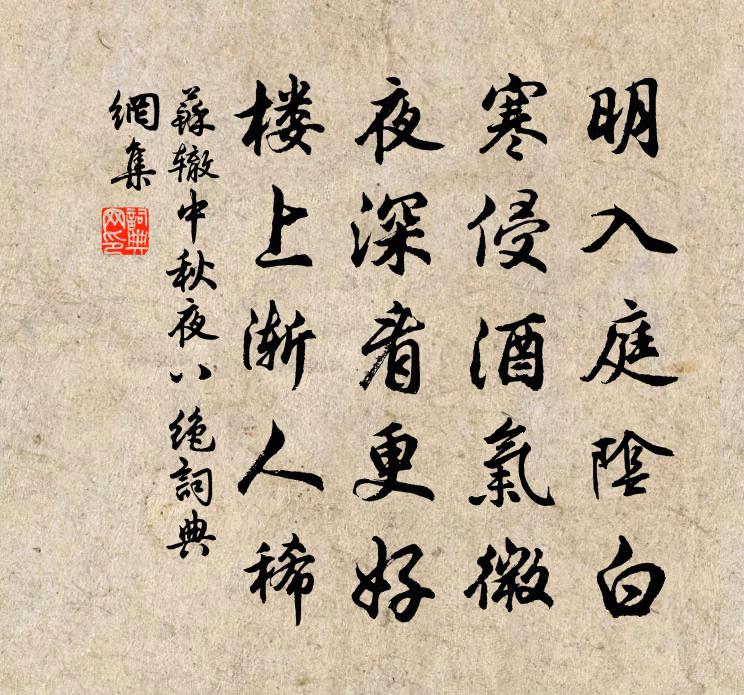 明入庭陰白
寒侵酒氣微
夜深看更好
楼上渐人稀
蘇辙中秋夜八绝詞典
網集
詞典網印